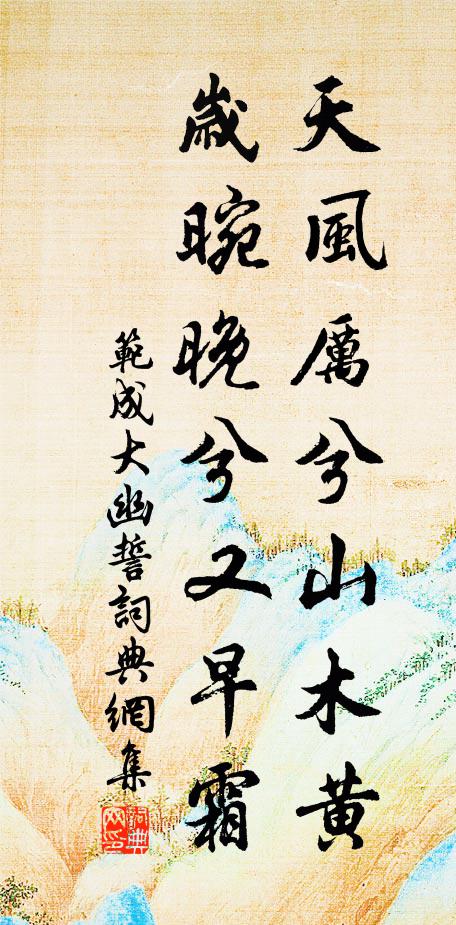 天風厲兮山木黄
歲晼晚兮又早霜
範成大幽誓詞典網集
詞典網印